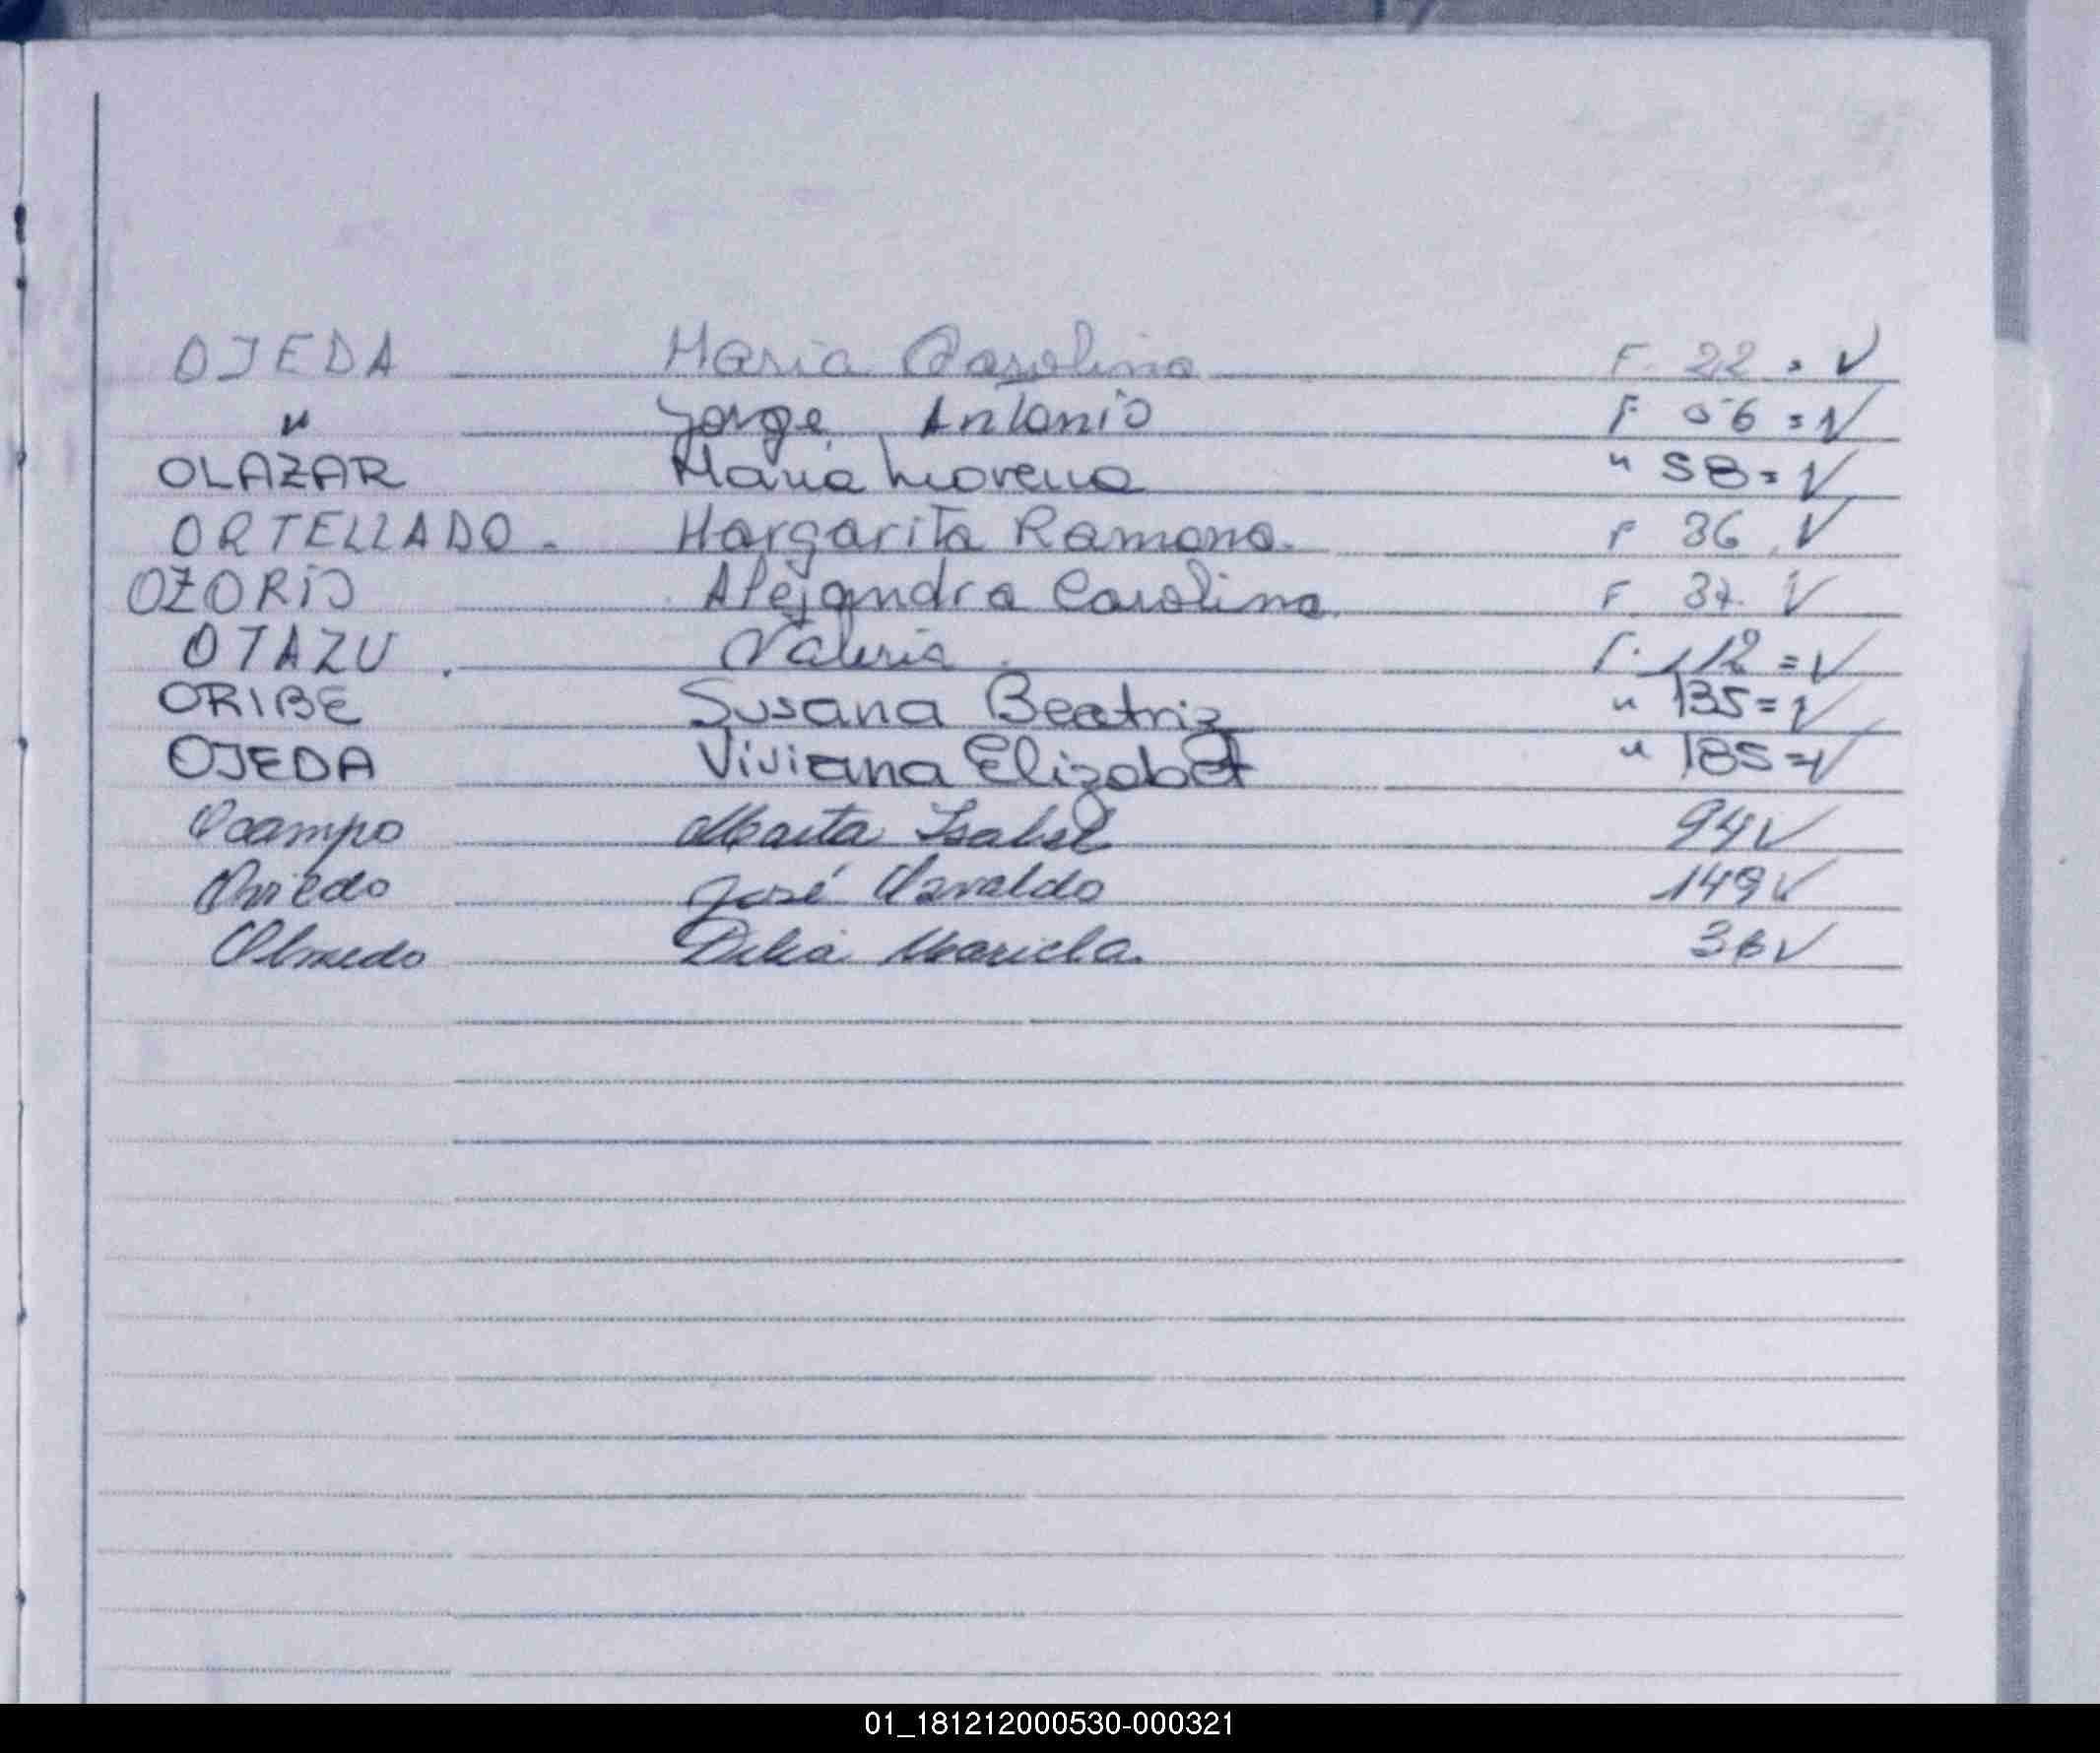 OJEDA Maria Carolina F. 22 = √
" Jorge Antonio F 56 = √
OLAZAR Maria Lorena " 58 = √
ORTELLADO - Margarita Ramona. F 86 √
OZORIO Alejandra Carolina. F. 87 √
OTAZU . Valeria . F. 112 = √
ORIBE Susana Beatriz " 135 = √
OJEDA Viviana Elizabet " 185 = √
Ocampo Marta Isabel 94 √
Oviedo José Osvaldo 149 √
Olmedo Delia Mariela. 36 √
01_181212000530-000321